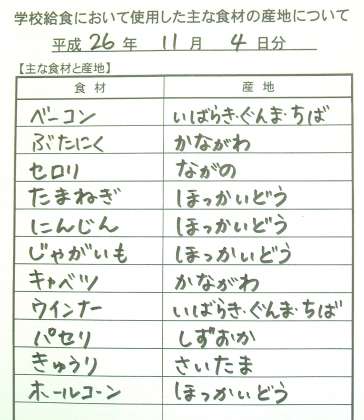 学校給食において使用した主な食材の産地について
平成 26 年 11 月 4 日分
【主な食材と産地】
食材 産地
ベーコン いばらき・ぐんま・ちば
ぶたにく かながわ
セロリ ながの
たまねぎ ほっかいどう
にんじん ほっかいどう
じゃがいも ほっかいどう
キャベツ かながわ
ウインナー いばらき・ぐんま・ちば
パセリ しずおか
きゅうり さいたま
ホールコーン ほっかいどう